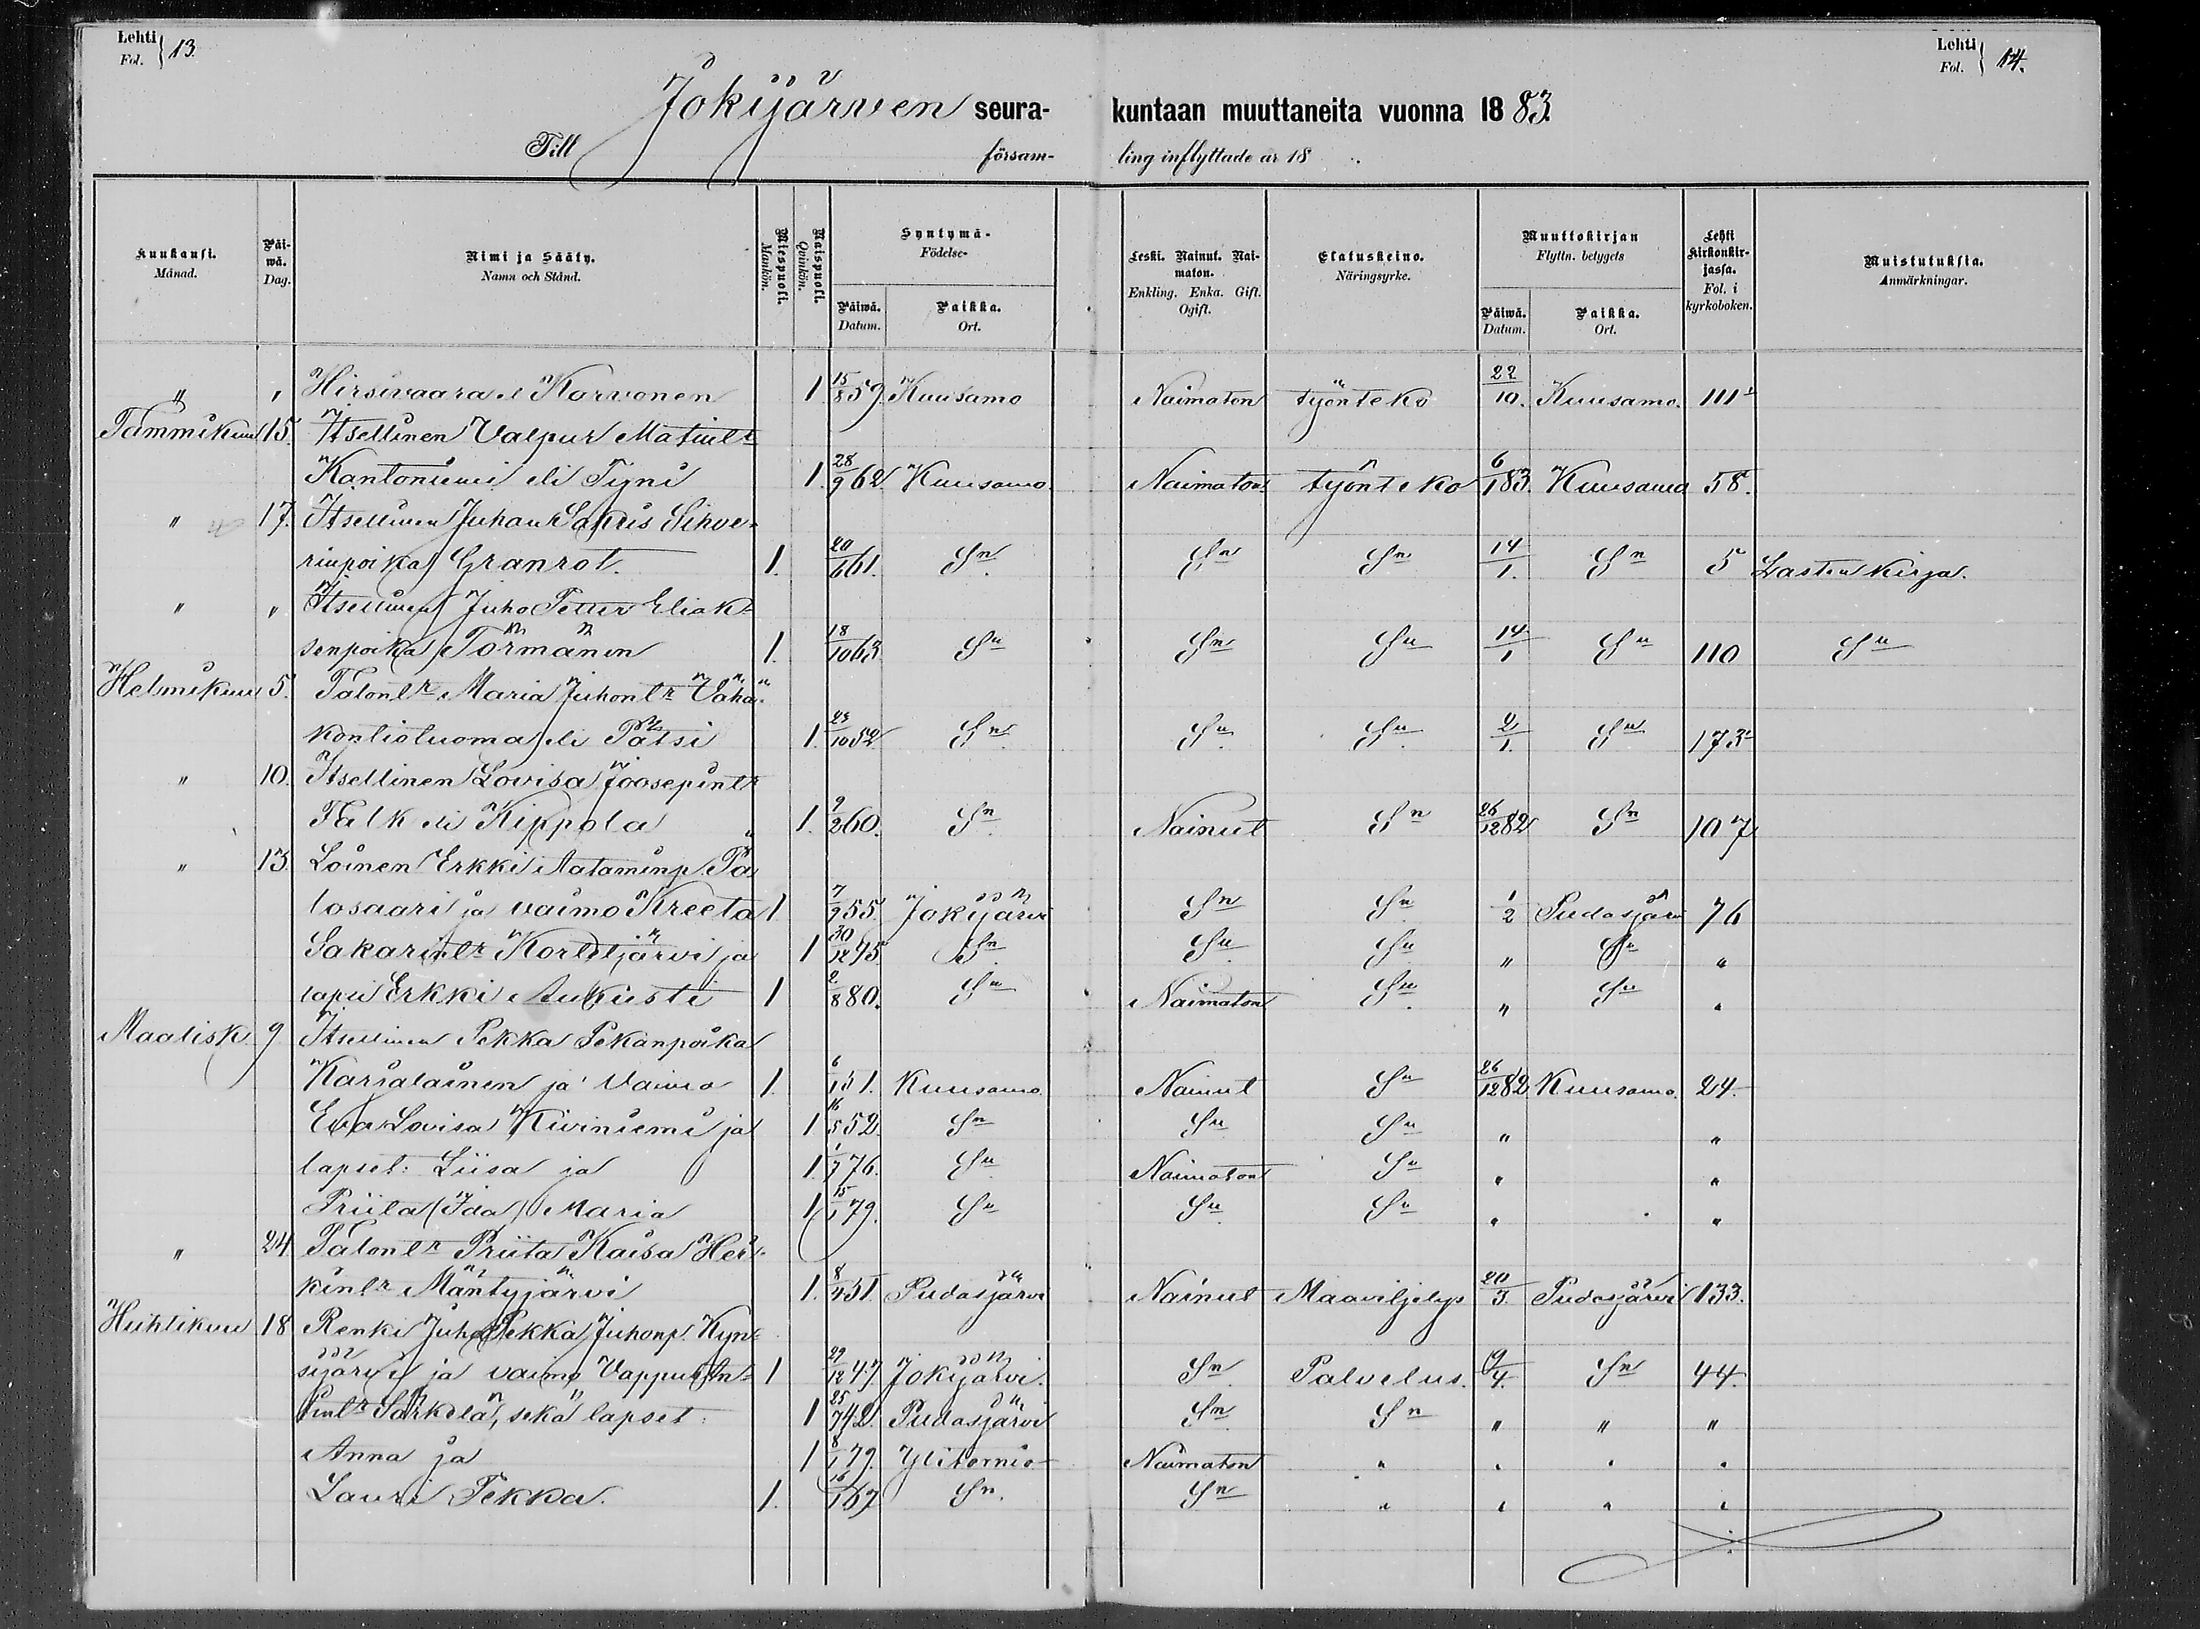 Lehti Fol. 13.
Lehti Fol. 14.
Jokijärven seura- kuntaan muuttaneita vuonna 1883.
Till försam- ling inflyttade år 18
Kuukausi. Månad. Päi-wä. Dag. Nimi ja Sääty. Namn och Stånd. Miespuoli. Mankön. Naispuoli. Qvinkön. Syntymä- Födelse- Päiwä. Datum. Paikka. Ort. Leski. Nainut. Nai-maton. Enkling. Enka. Gift. Ogift. Elatuskeino. Näringsyrke. Muuttokirjan Flyttn. betygets Päiwä. Datum. Paikka. Ort. Lehti kirkonkir-jassa. Fol. i kyrkoboken. Muistutuksia. Anmärkningar.
" " Hirsivaara l. Korvonen 1 15/8 59. Kuusamo Naimaton työnteko 22/10. Kuusamo. 111
Tammikuu 15. Itsellinen Valpur Matintr
Kantoniemi eli Tyni 1. 28/9 62 Kuusamo. Naimaton työnteko 6/1 83. Kuusamo 58.
" 17. Itsellinen Juhan Sakris Sihve-
rinpoika Granrot. 1. 20/6 61. Sn Sn Sn 14/1. Sn 5 Lasten kirja.
" " Itsellinen Juho Petter Eliak-
senpoika Törmänen 1. 18/10 63 Sn Sn Sn 14/1 Sn 110 Sn
Helmikuu 5. Talontr Maria Juhontr Vähä-
kontioluoma eli Pätsi 1. 23/10 52 Sn Sn Sn 2/1. Sn 173
" 10. Itsellinen Lovisa Joosepintr
Falk eli Kippola 1. 9/2 60. Sn Nainut Sn 26/12 82 Sn 107
" 13. Loinen Erkki Aataminp. Pa-
losaari ja vaimo Kreeta 1 7/9 55. Jokijärvi Sn Sn 1/2 Pudasjärvi 76
Sakarintr Korteljärvi ja 1 30/12 95 Sn Sn Sn " Sn "
lapsi Erkki Aukusti 1 2/8 80. Sn Naimaton Sn " Sn "
Maalisk. 9 Itsellinen Pekka Pekanpoika
Karjalainen ja Vaimo 1. 6/1 51. Kuusamo. Nainut Sn 26/12 82 Kuusamo. 24.
Eva Lovisa Kiviniemi ja 1 16/5 52. Sn Sn Sn " "
lapset: Liisa ja 1. 1/7 76. Sn Naimaton Sn " "
Priita (Ida) Maria 1 15/1 79. Sn Sn Sn " "
" 24 Talontr Priita Kaisa Hei-
kintr Mäntyjärvi 1. 8/4 51 Pudasjärvi Nainut Maaviljelys 20/3. Pudasjärvi 133.
Huhtikuu 18 Renki Juho Pekka Juhonp. Kyn-
sijärvi ja vaimo Vappu An- 1 29/12 47 Jokijärvi. Sn Palvelus. 9/4. Sn 44.
tintr Särkelä, sekä lapset: 1 25/7 42. Pudasjärvi Sn Sn " " "
Anna ja 1 8/1 79. Ylitornio Naimaton " " " "
Lauri Pekka. 1. 16/1 67 Sn. Sn " " " "